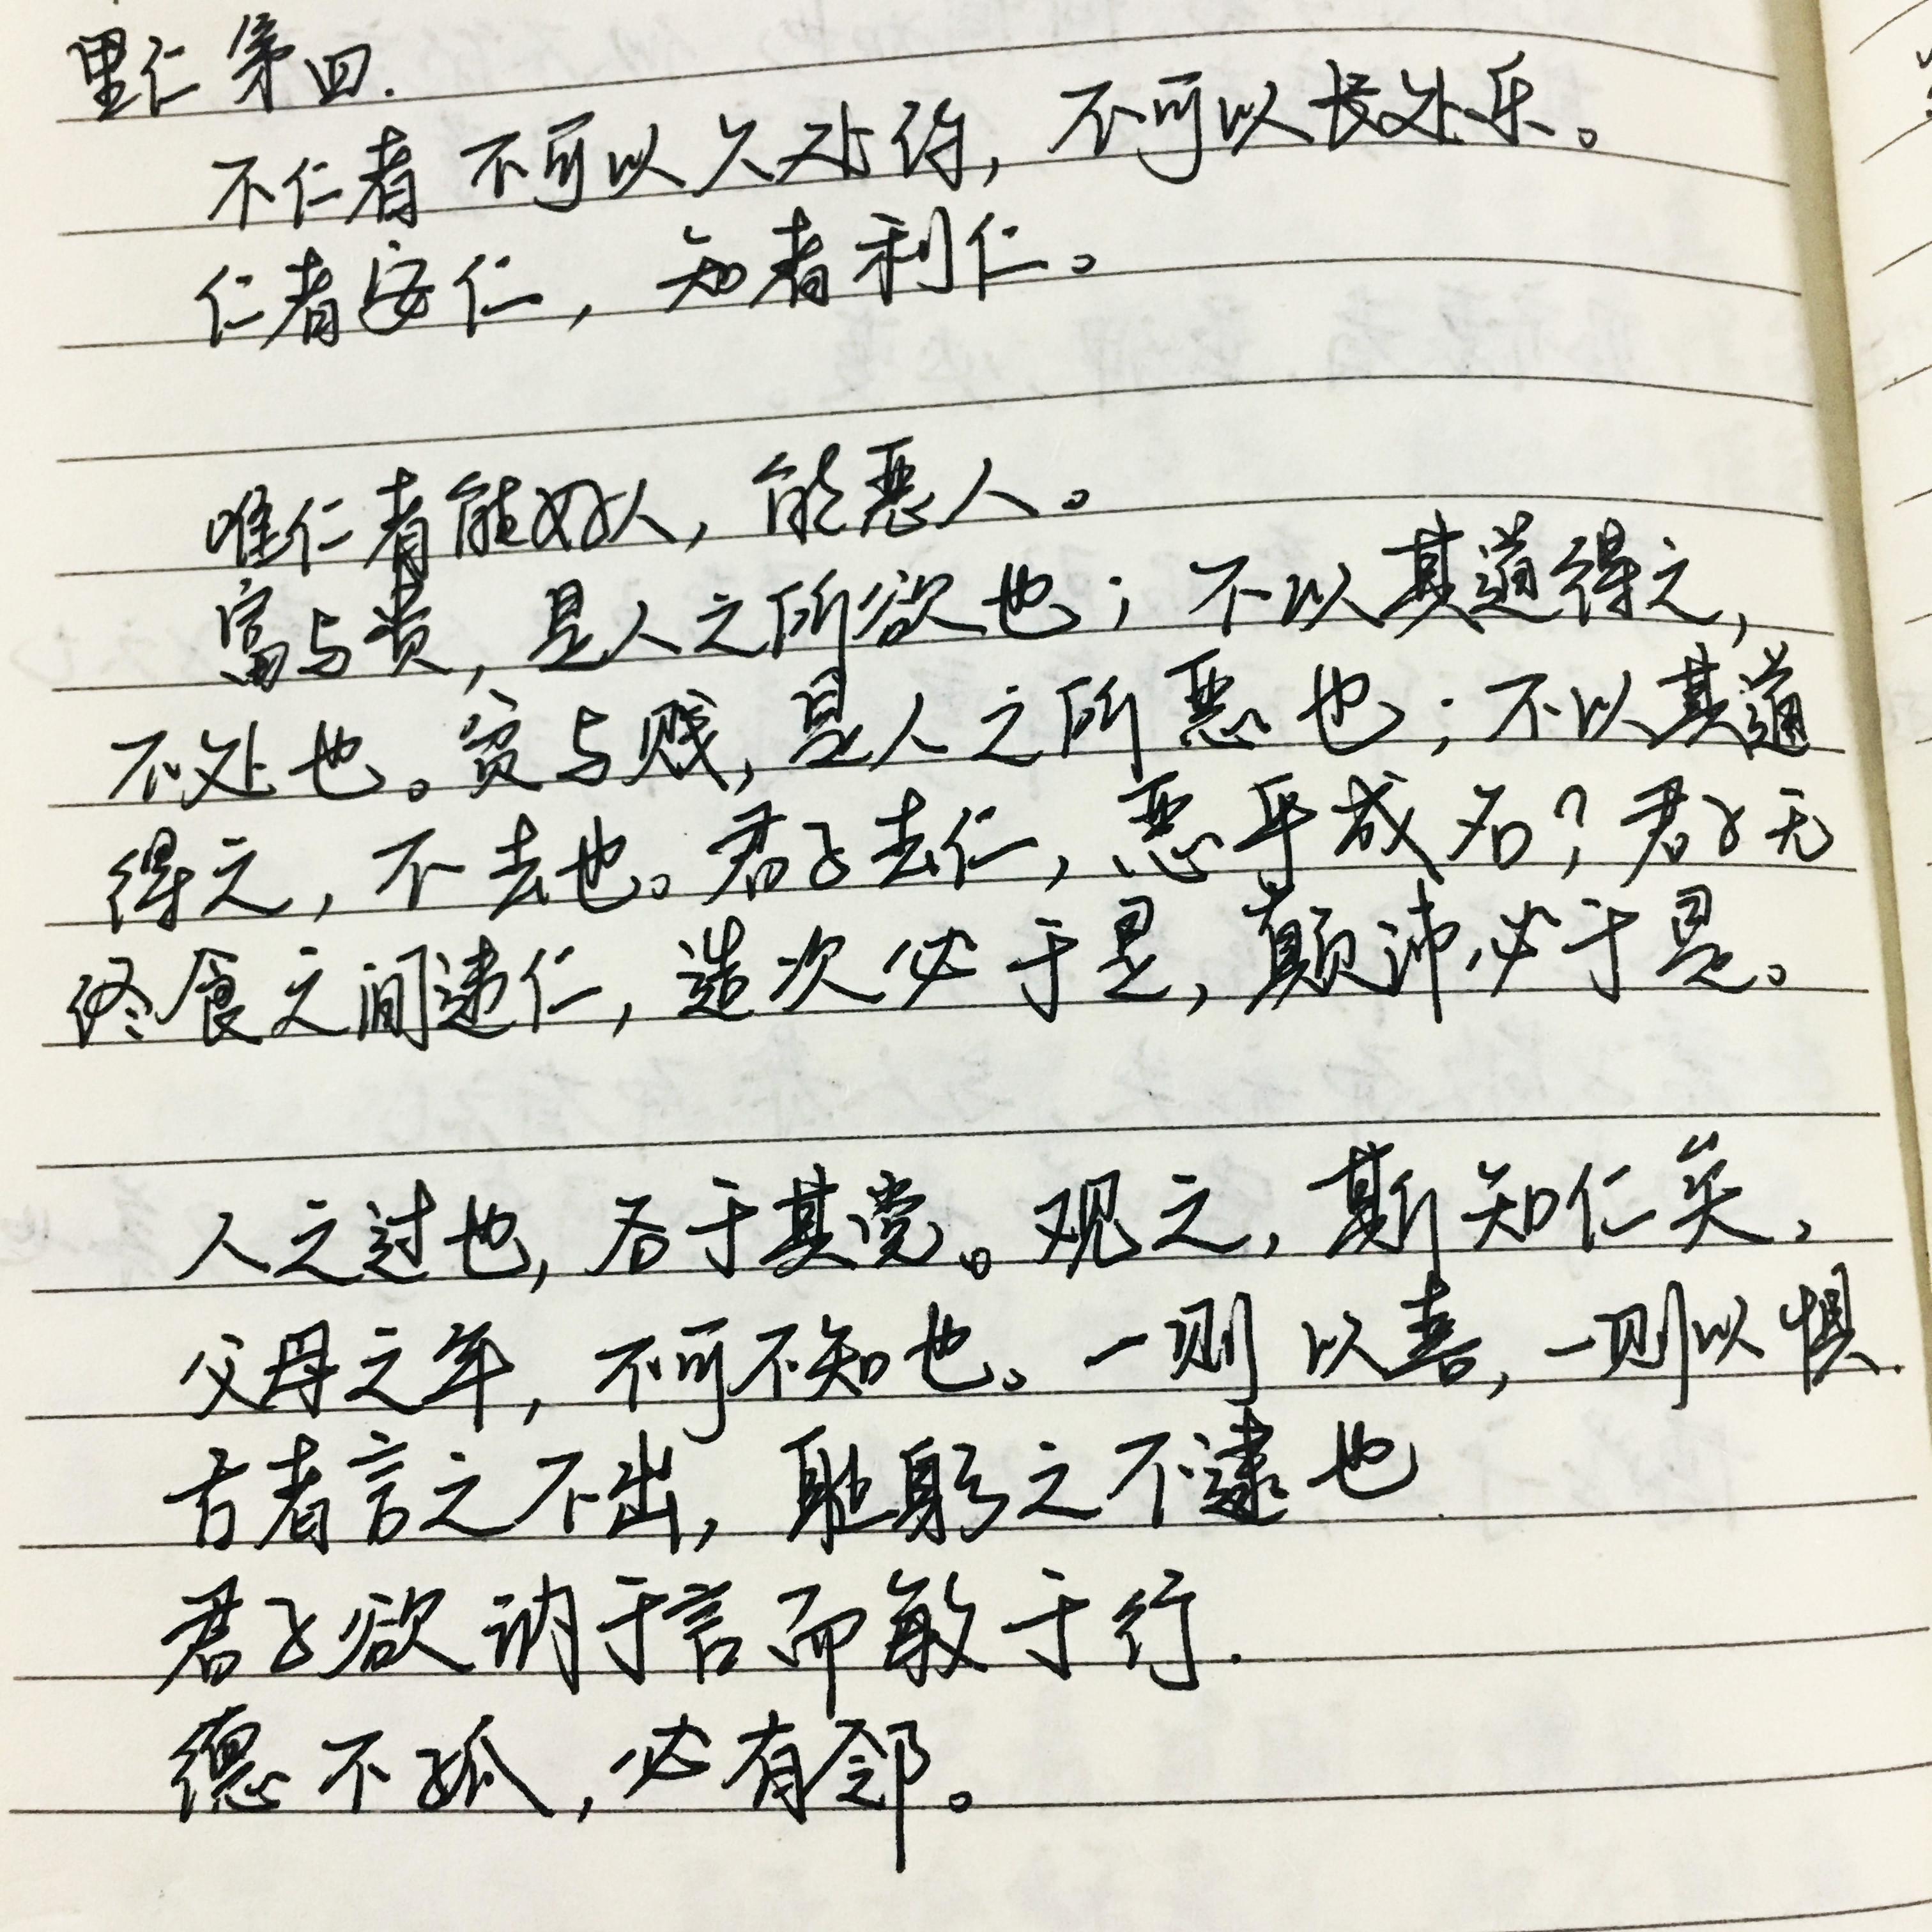 里仁第四.
不仁者 不可以久处约, 不可以长处乐。
仁者安仁, 知者利仁。
唯仁者能好人, 能恶人。
富与贵, 是人之所欲也; 不以其道得之,
不处也。贫与贱, 是人之所恶也; 不以其道
得之, 不去也。君子去仁, 恶乎成名? 君子无
终食之间违仁, 造次必于是, 颠沛必于是。
人之过也, 各于其党。观之, 斯知仁矣,
父母之年, 不可不知也。一则以喜, 一则以惧.
古者言之不出, 耻躬之不逮也
君子欲讷于言而敏于行.
德不孤, 必有邻。